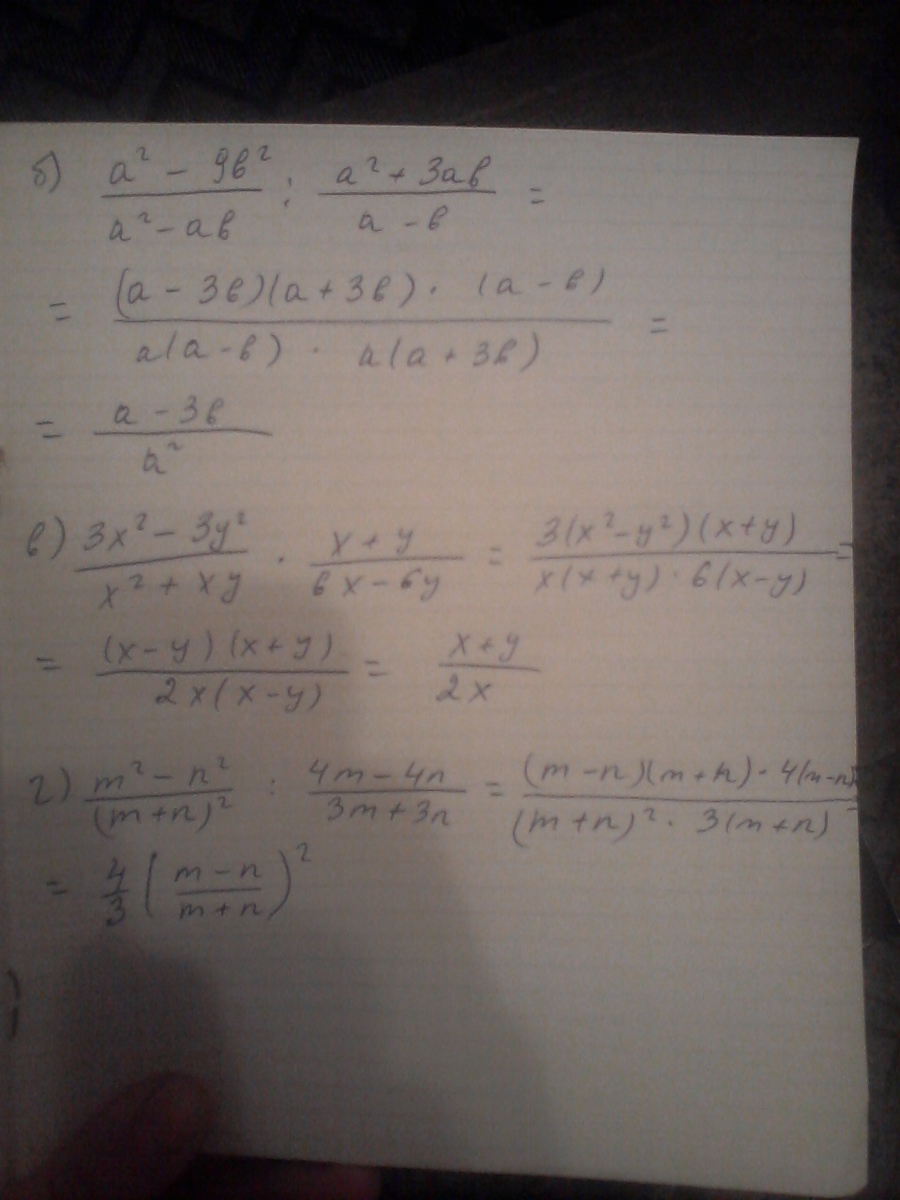 б) (a² - 9в²)/(a² - aв) : (a² + 3aв)/(a - в) =
= ((a - 3в)(a + 3в) · (a - в))/(a(a - в) · a(a + 3в)) =
= (a - 3в)/a²
в) (3x² - 3y²)/(x² + xy) · (x + y)/(6x - 6y) = (3(x² - y²)(x + y))/(x(x + y) · 6(x - y)) =
= ((x - y)(x + y))/(2x(x - y)) = (x + y)/(2x)
г) (m² - n²)/(m + n)² : (4m - 4n)/(3m + 3n) = ((m - n)(m + n) · 4(m - n))/((m + n)² · 3(m + n)) =
= 4/3 ((m - n)/(m + n))²